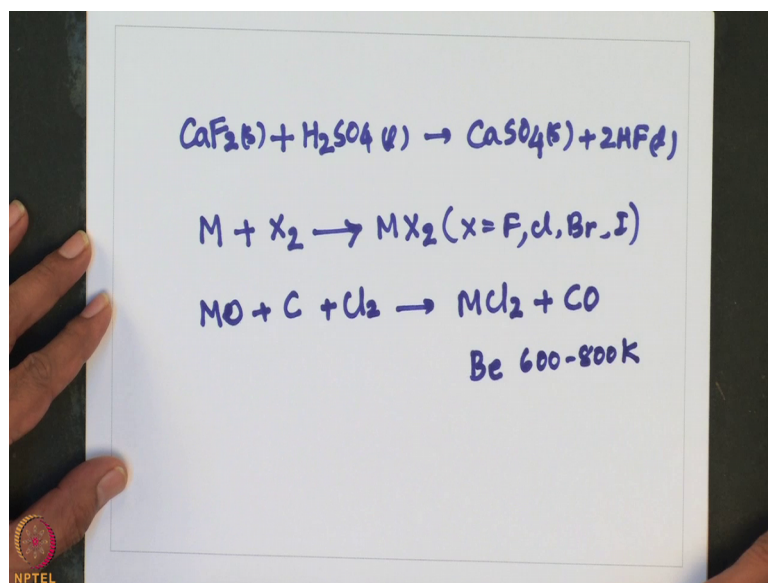 CaF2(s) + H2SO4(l) → CaSO4(s) + 2HF(l)
M + X2 → MX2 (X = F, Cl, Br, I)
MO + C + Cl2 → MCl2 + CO
Be 600-800K
NPTEL